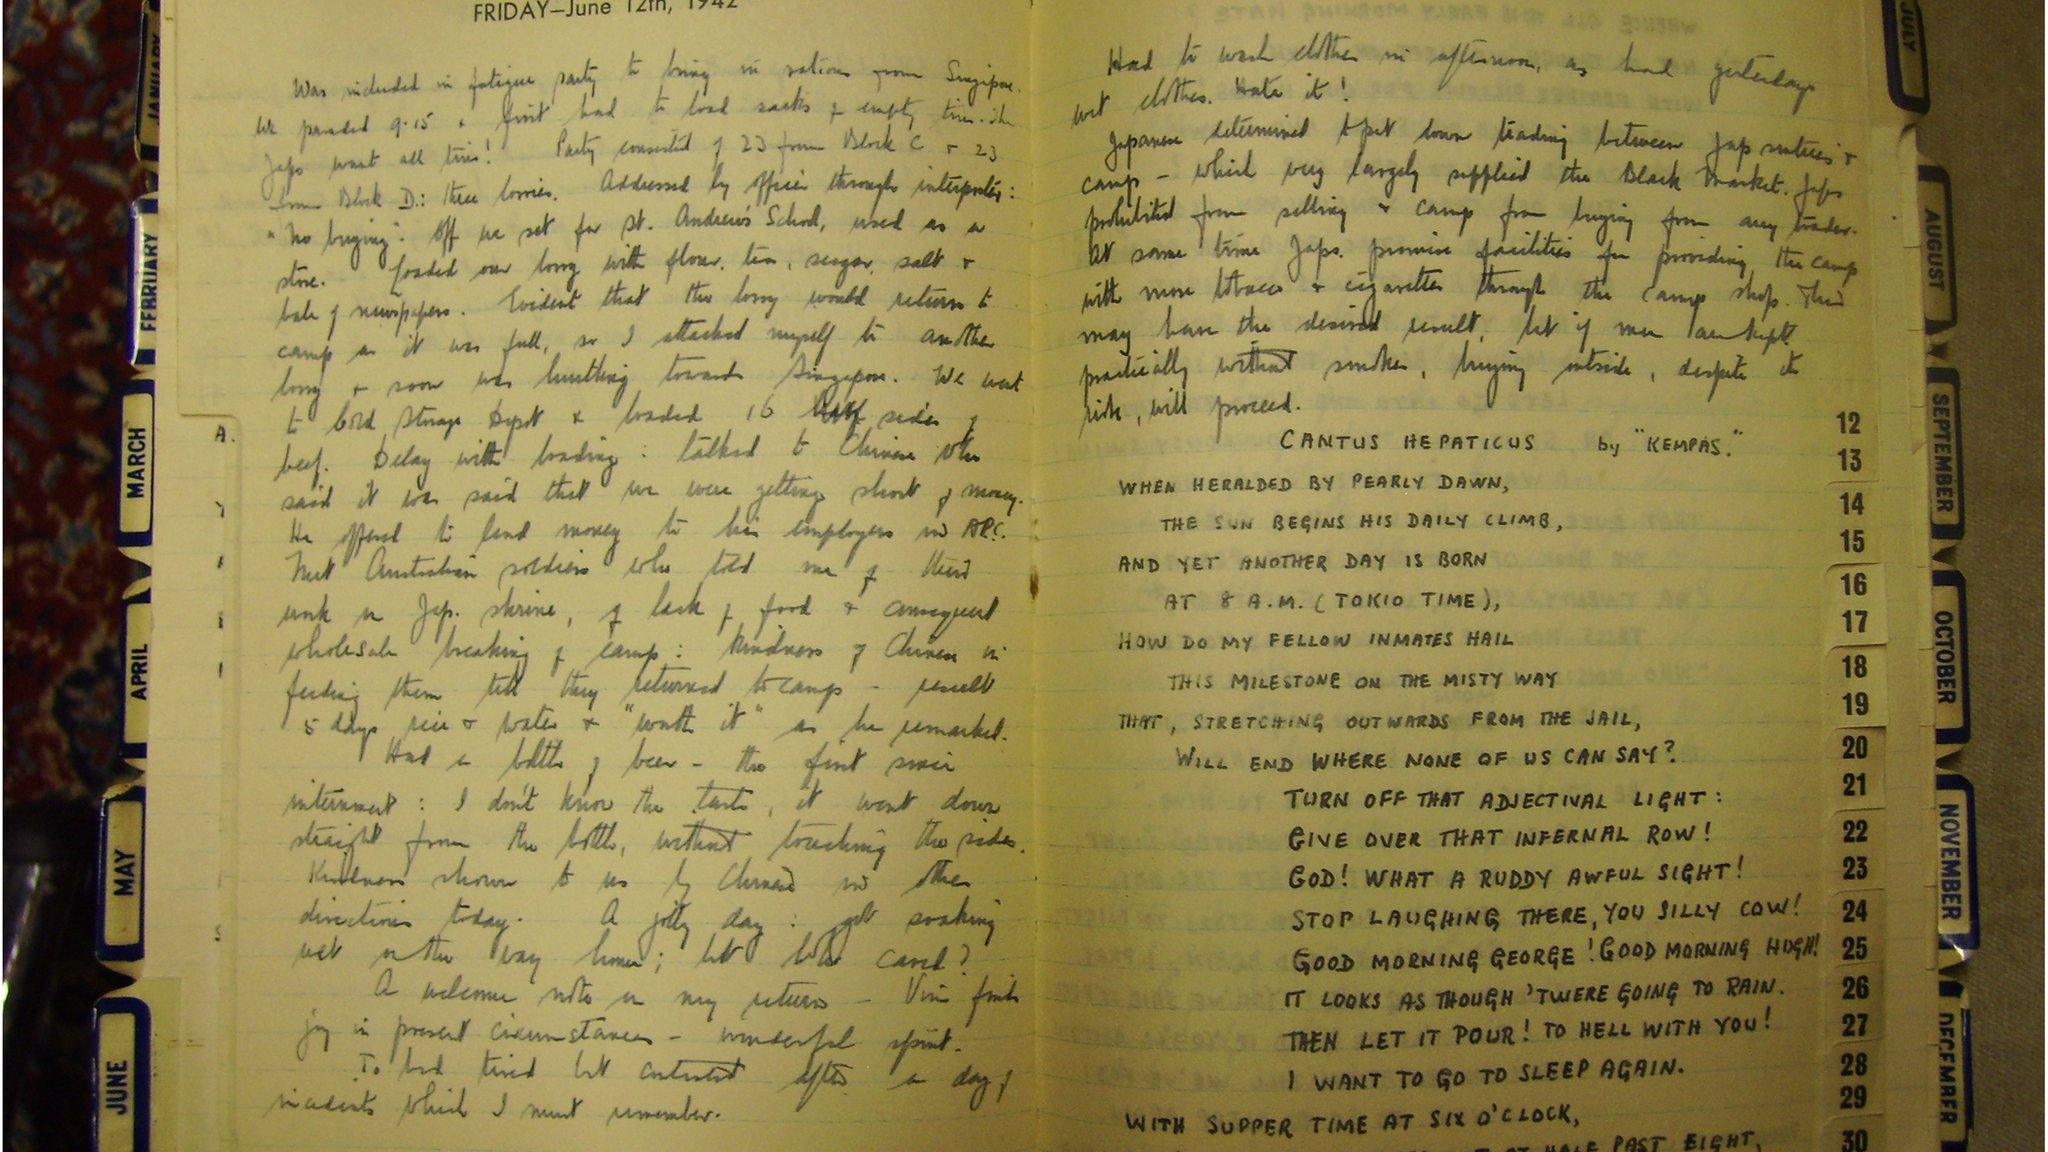 FRIDAY—June 12th, 1942
Was included in fatigue party to bring in rations from Singapore.
We paraded 9.15 & first had to load sacks of empty tins. The
Japs want all tins! Party consisted of 23 from Block C & 23
from Block D.: three lorries. Addressed by officer through interpreter:
"No buying". Off we set for St. Andrew's School, used as a
store. Loaded our lorry with flour, tea, sugar, salt &
bale of newspapers. Evident that the lorry would return to
camp as it was full, so I attached myself to another
lorry & soon was hurtling towards Singapore. We went
to Cold Storage Depot & loaded 16 half sides of
beef. Delay with loading: talked to Chinese who
said it was said that we were getting short of money.
He offered to lend money to his employers in APC.
Met Australian soldiers who told me of their
work on Jap. shrine, of lack of food & consequent
wholesale breaking of camp: kindness of Chinese in
feeding them till they returned to camp - result
5 days rice & water & "worth it" as he remarked.
Had a bottle of beer - the first since
internment: I don't know the taste, it went down
straight from the bottle, without touching the sides.
Kindness shown to us by Chinese in other
directions today. A jolly day: got soaking
wet on the way home; but who cared?
A welcome note on my return - finds
joy in present circumstances - wonderful spirit.
To bed tired but contented after a day of
incidents which I must remember.
Had to wash clothes in afternoon, as had yesterdays
wet clothes. Hate it!
Japanese determined to put down trading between Jap sentries &
camp - which very largely supplied the Black Market. Japs
prohibited from selling & camp from buying from any trader.
At same time Japs. promise facilities for providing the camp
with more tobacco & cigarettes through the camp shop. This
may have the desired result, but if men are kept
practically without smokes, buying outside, despite its
risk, will proceed.
CANTUS HEPATICUS by "KEMPAS."
WHEN HERALDED BY PEARLY DAWN,
THE SUN BEGINS HIS DAILY CLIMB,
AND YET ANOTHER DAY IS BORN
AT 8 A.M. (TOKIO TIME),
HOW DO MY FELLOW INMATES HAIL
THIS MILESTONE ON THE MISTY WAY
THAT, STRETCHING OUTWARDS FROM THE JAIL,
WILL END WHERE NONE OF US CAN SAY?
TURN OFF THAT ADJECTIVAL LIGHT:
GIVE OVER THAT INFERNAL ROW!
GOD! WHAT A RUDDY AWFUL SIGHT!
STOP LAUGHING THERE, YOU SILLY COW!
GOOD MORNING GEORGE! GOOD MORNING HUGH!
IT LOOKS AS THOUGH 'TWERE GOING TO RAIN.
THEN LET IT POUR! TO HELL WITH YOU!
I WANT TO GO TO SLEEP AGAIN.
WITH SUPPER TIME AT SIX O'CLOCK,
AT HALF PAST EIGHT,
JANUARY
FEBRUARY
MARCH
APRIL
MAY
JUNE
JULY
AUGUST
SEPTEMBER
OCTOBER
NOVEMBER
DECEMBER
12
13
14
15
16
17
18
19
20
21
22
23
24
25
26
27
28
29
30